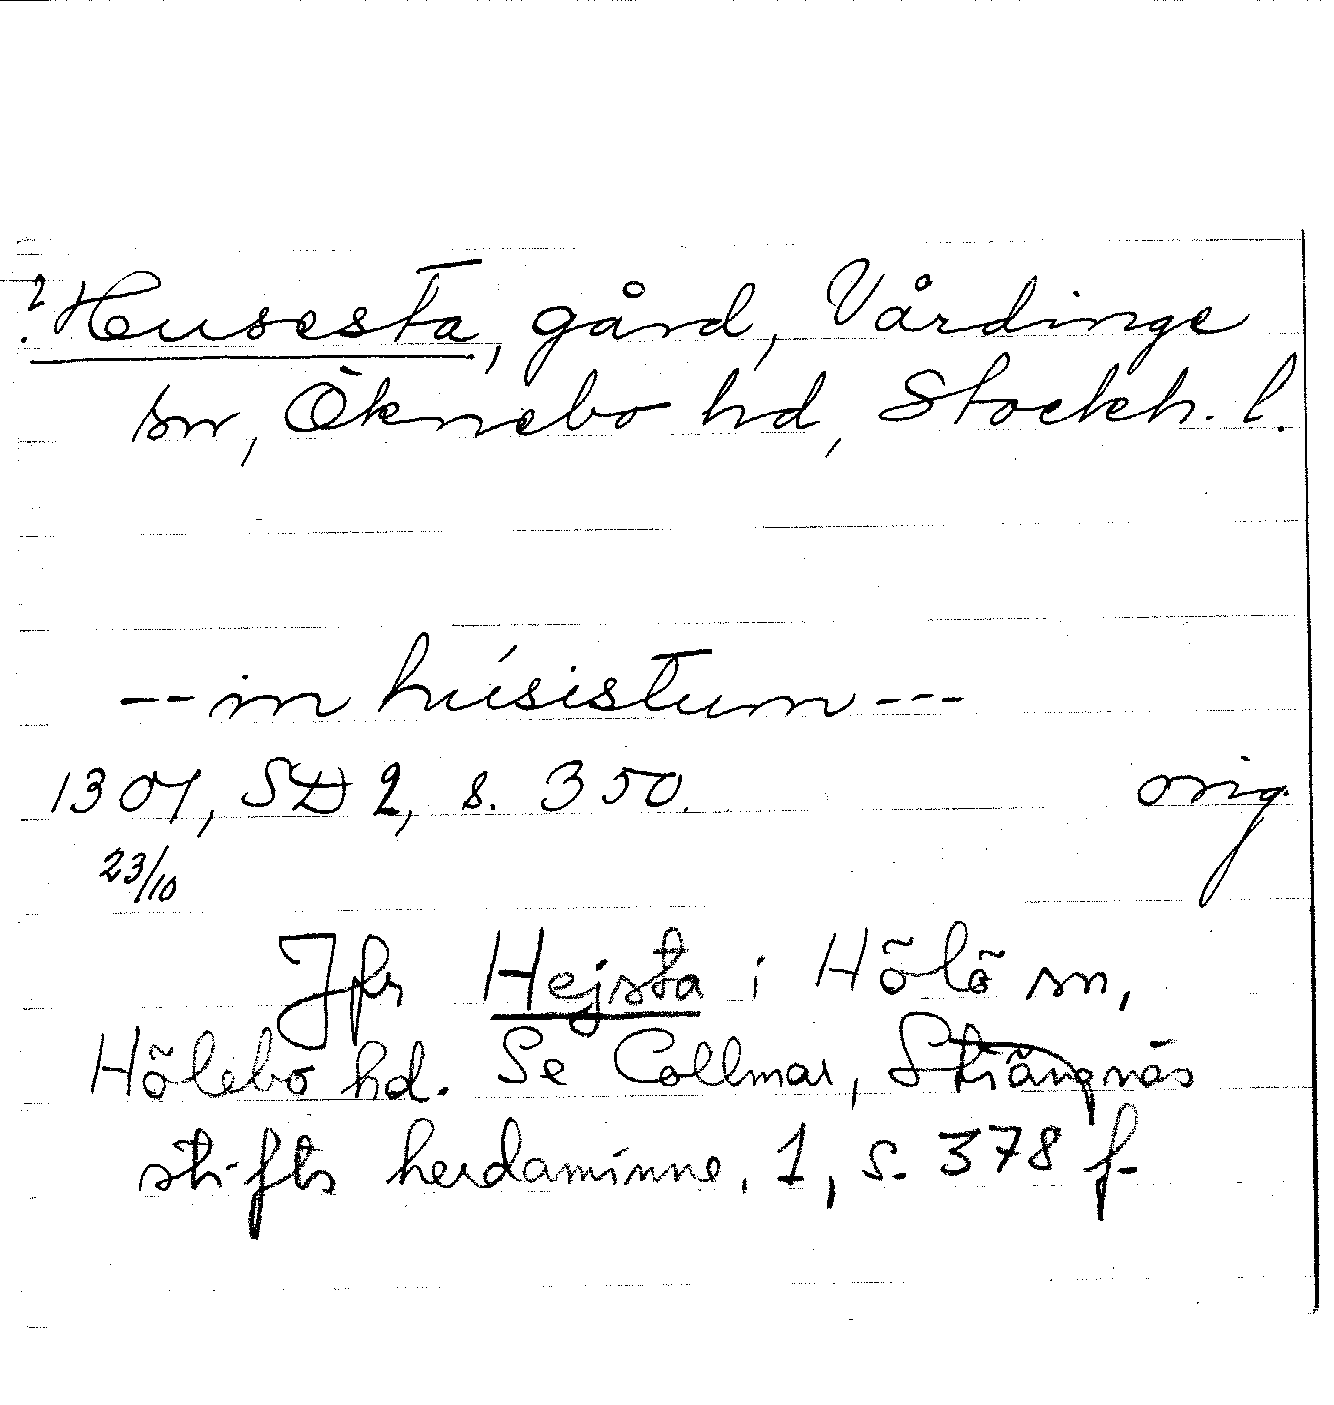 ? Husesta, gård, Vårdinge
sn, Öknebo hd, Stockh. l.
-- in húsistum ---
1301, SD 2, s. 350. orig.
23/10
Jfr Hejsta i Hölö sn,
Hölebo hd. Se Collmar, Strängnäs
stifts herdaminne. 1, s. 378 f.